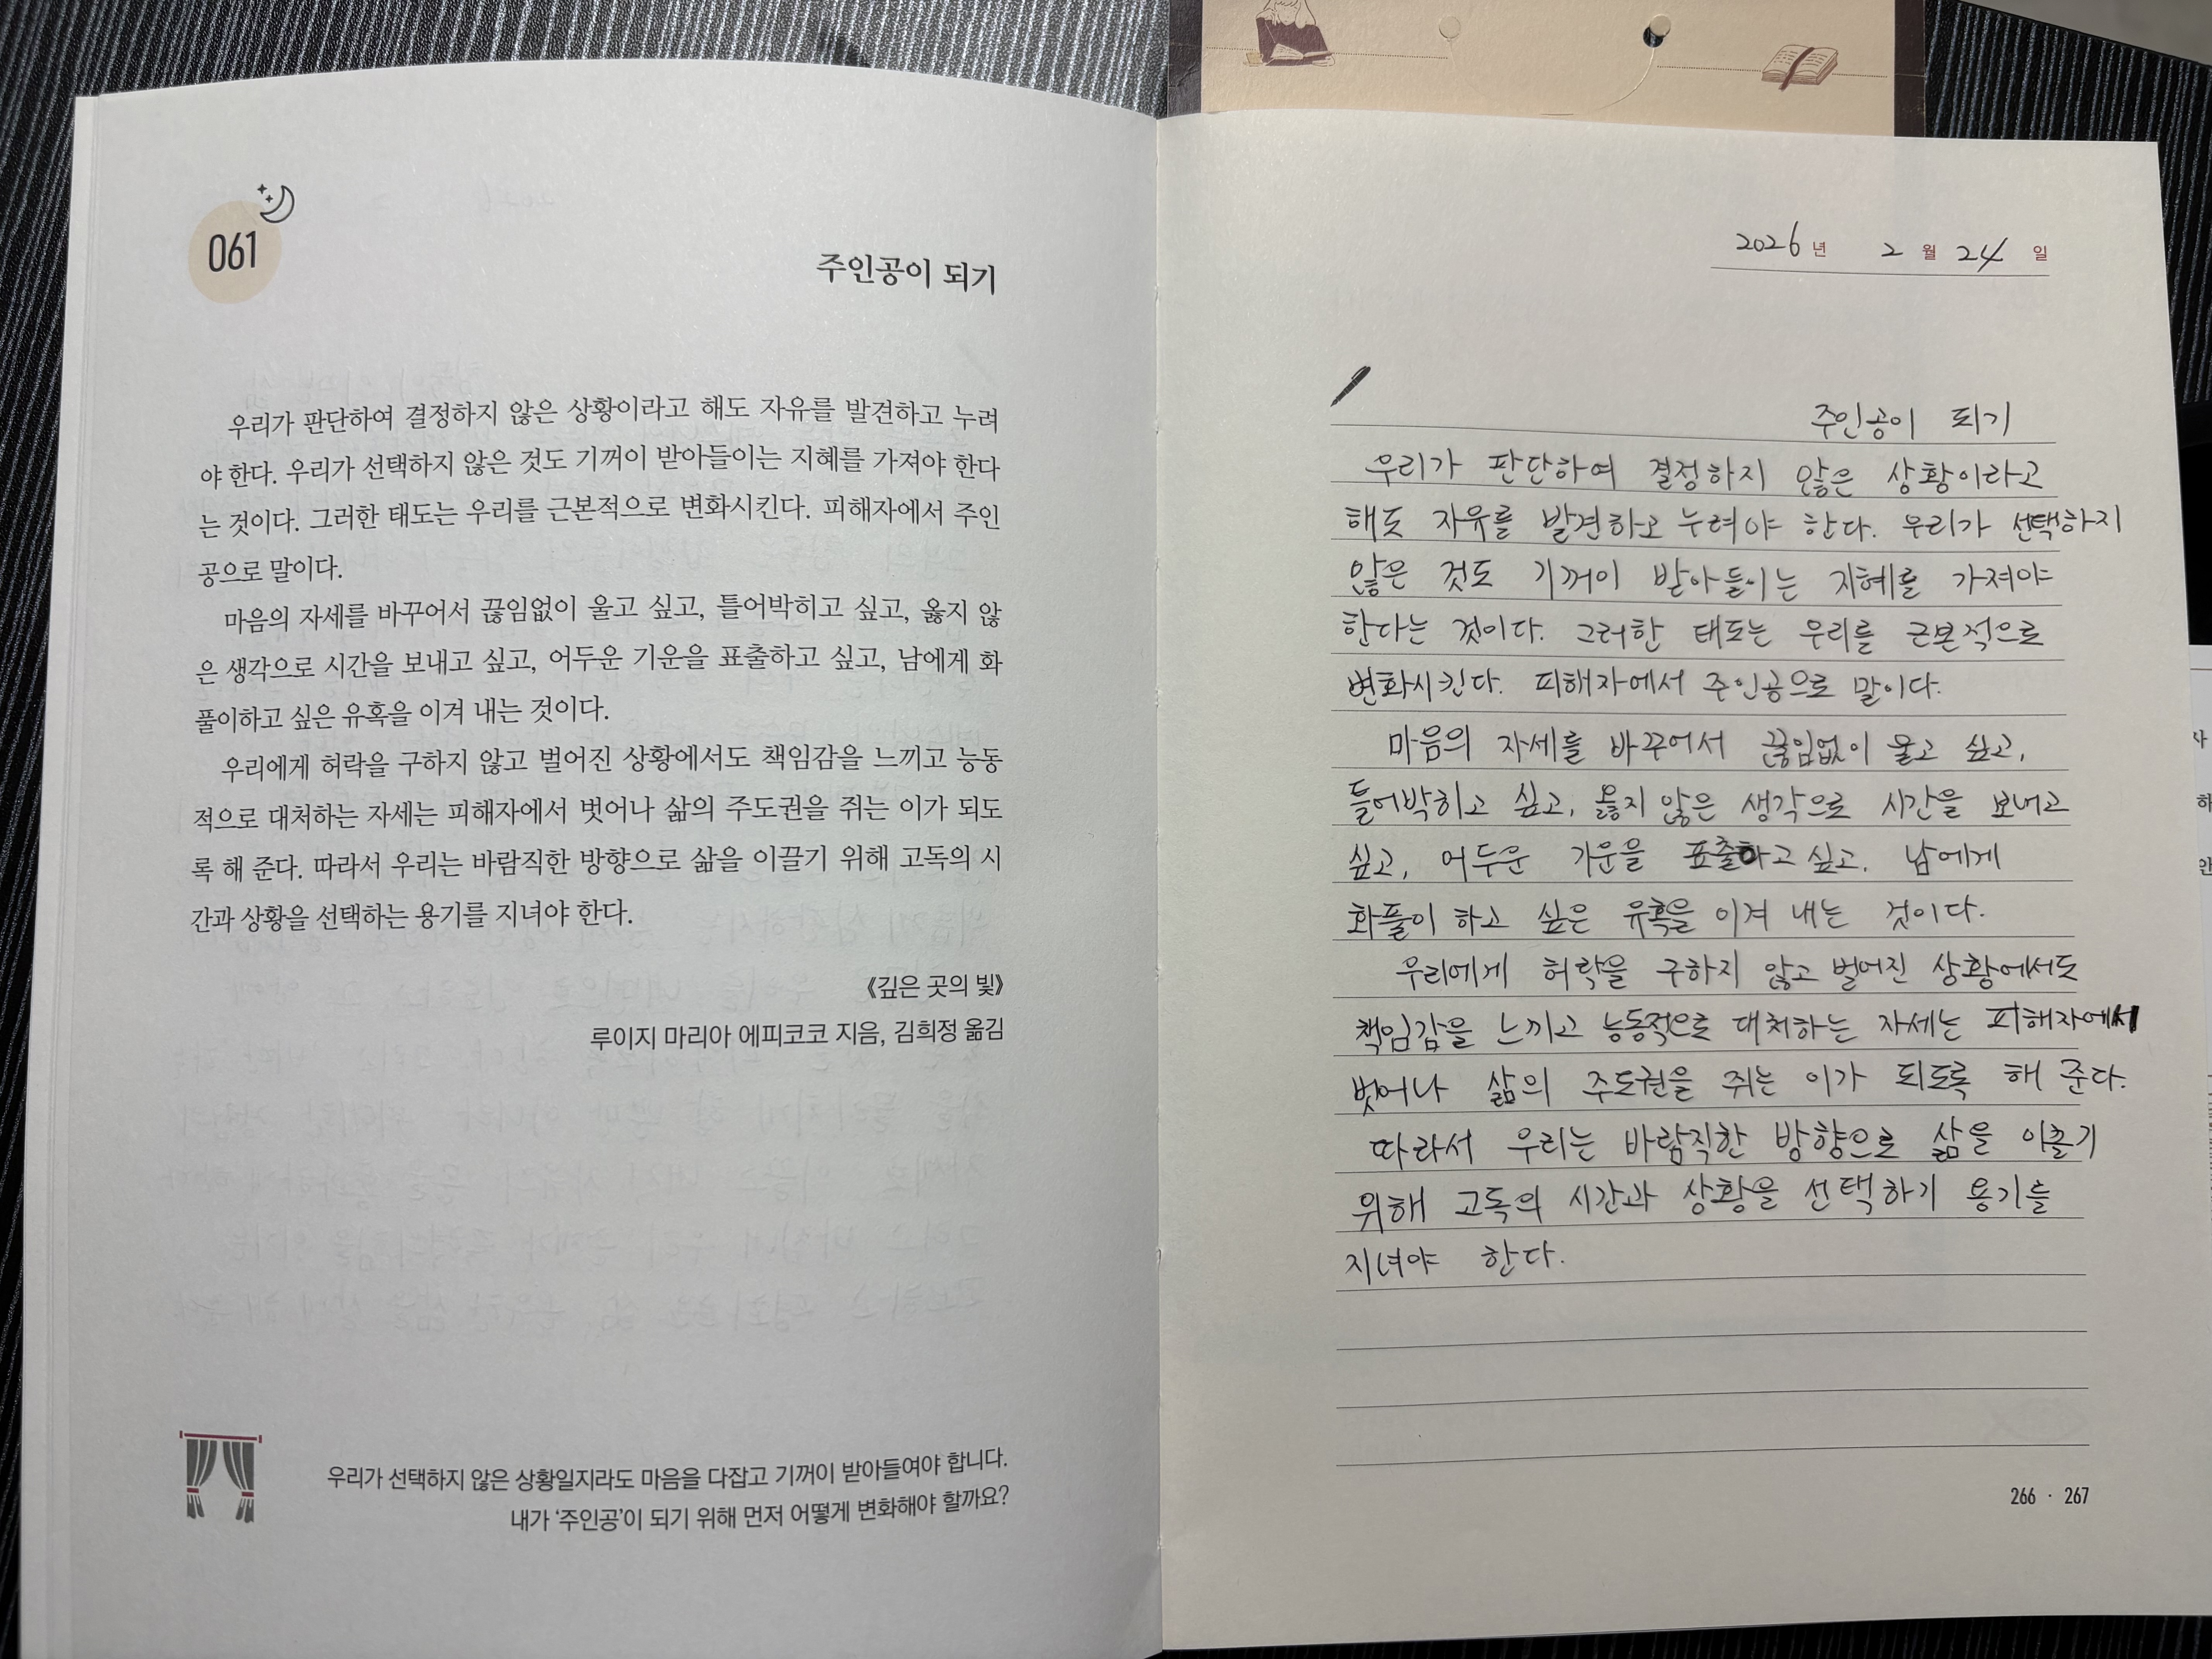 061
주인공이 되기
우리가 판단하여 결정하지 않은 상황이라고 해도 자유를 발견하고 누려
야 한다. 우리가 선택하지 않은 것도 기꺼이 받아들이는 지혜를 가져야 한다
는 것이다. 그러한 태도는 우리를 근본적으로 변화시킨다. 피해자에서 주인
공으로 말이다.
마음의 자세를 바꾸어서 끊임없이 울고 싶고, 틀어박히고 싶고, 옳지 않
은 생각으로 시간을 보내고 싶고, 어두운 기운을 표출하고 싶고, 남에게 화
풀이하고 싶은 유혹을 이겨 내는 것이다.
우리에게 허락을 구하지 않고 벌어진 상황에서도 책임감을 느끼고 능동
적으로 대처하는 자세는 피해자에서 벗어나 삶의 주도권을 쥐는 이가 되도
록 해 준다. 따라서 우리는 바람직한 방향으로 삶을 이끌기 위해 고독의 시
간과 상황을 선택하는 용기를 지녀야 한다.
《깊은 곳의 빛》
루이지 마리아 에피코코 지음, 김희정 옮김
우리가 선택하지 않은 상황일지라도 마음을 다잡고 기꺼이 받아들여야 합니다.
내가 ‘주인공’이 되기 위해 먼저 어떻게 변화해야 할까요?
2026년 2월 24일
주인공이 되기
우리가 판단하여 결정하지 않은 상황이라고
해도 자유를 발견하고 누려야 한다. 우리가 선택하지
않은 것도 기꺼이 받아들이는 지혜를 가져야
한다는 것이다. 그러한 태도는 우리를 근본적으로
변화시킨다. 피해자에서 주인공으로 말이다.
마음의 자세를 바꾸어서 끊임없이 울고 싶고,
틀어박히고 싶고, 옳지 않은 생각으로 시간을 보내고
싶고, 어두운 기운을 표출하고 싶고, 남에게
화풀이 하고 싶은 유혹을 이겨 내는 것이다.
우리에게 허락을 구하지 않고 벌어진 상황에서도
책임감을 느끼고 능동적으로 대처하는 자세는 피해자에서
벗어나 삶의 주도권을 쥐는 이가 되도록 해 준다.
따라서 우리는 바람직한 방향으로 삶을 이끌기
위해 고독의 시간과 상황을 선택하기 용기를
지녀야 한다.
266 · 267